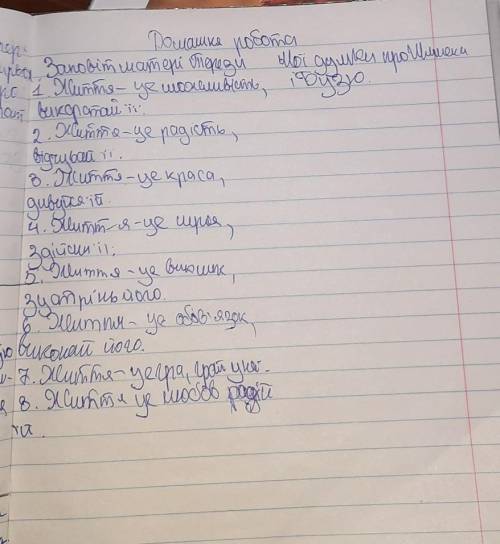 Домашня робота
Заповіт матері Терези Мої думки про Климка
1. Життя - це можливість, і Бузю.
викорстай її.
2. Життя - це радість,
відчувай її.
3. Життя - це краса,
дивуйся їй.
4. Життя - це мрія,
здійсни її.
5. Життя - це виклик,
зустрінь його.
6. Життя - це обов'язок,
виконай його.
7. Життя - це гра, грай у неї.
8. Життя це любов радій